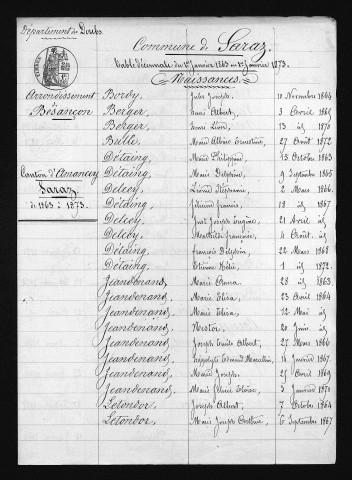 Département du Doubs.
Commune de Saraz.
Table Décennale du 1er Janvier 1863 au 1er Janvier 1873.
Naissances.
Arrondissement
de
Besançon
Canton d'Amancey
Saraz
de 1863 à 1873.
Bordy, Jules Joseph. 10 Novembre 1864
Berger, Albert. 3 Avril 1869
Berger, Léon. 13 id 1870
Bulle, Marie Albine Ernestine. 27 Août 1872
Détaing, Marie Philippine. 15 Octobre 1863
Détaing, Marie Delphine. 9 Septembre 1865
Delcey, Léonid Stéphanie. 2 Mars 1866.
Delcey, Francis. 18 id 1867
Delcey, Just Joseph Eugène. 21 Avril id
Delcey, Mathilde Françoise. 4 Août id
Détaing, François Delphin. 22 Mars 1868
Détaing, Etienne Élie. 1 id 1872.
Jeandenand, Marie Anna. 28 id 1863.
Jeandenand, Marie Elisa. 23 Avril 1864
Jeandenand, Marie Elisa. 12 Mai id
Jeandenand, Nestor. 20 Juin id
Jeandenand, Joseph Emile Albert. 27 Mars 1866
Jeandenand, Hippolyte Edouard Marcellin. 14 Janvier 1867.
Jeandenand, Marie Joseph. 27 Avril 1869
Jeandenand, Marie Eloïse. 3 Janvier 1870
Letondor, Joseph Albert. 7 Octobre 1864
Letondor, Marie Joseph. 6 Septembre 1867